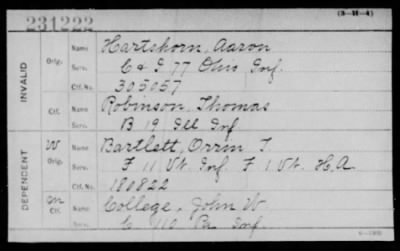 231222
(3-11-4)
INVALID
Orig.
Name Hartshorn, Aaron
Serv. C & I 77 Ohio Inf.
Ctf. No. 305057
Ctf.
Name Robinson, Thomas
Serv. B 19 Ill Inf
DEPENDENT
W
Orig.
Name Bartlett, Orrin T.
Serv. F 11 Vt. Inf. F 1 Vt. H.A.
Ctf. No. 180822
Ctf.
Name College, John W.
Serv. C 110 Pa Inf.